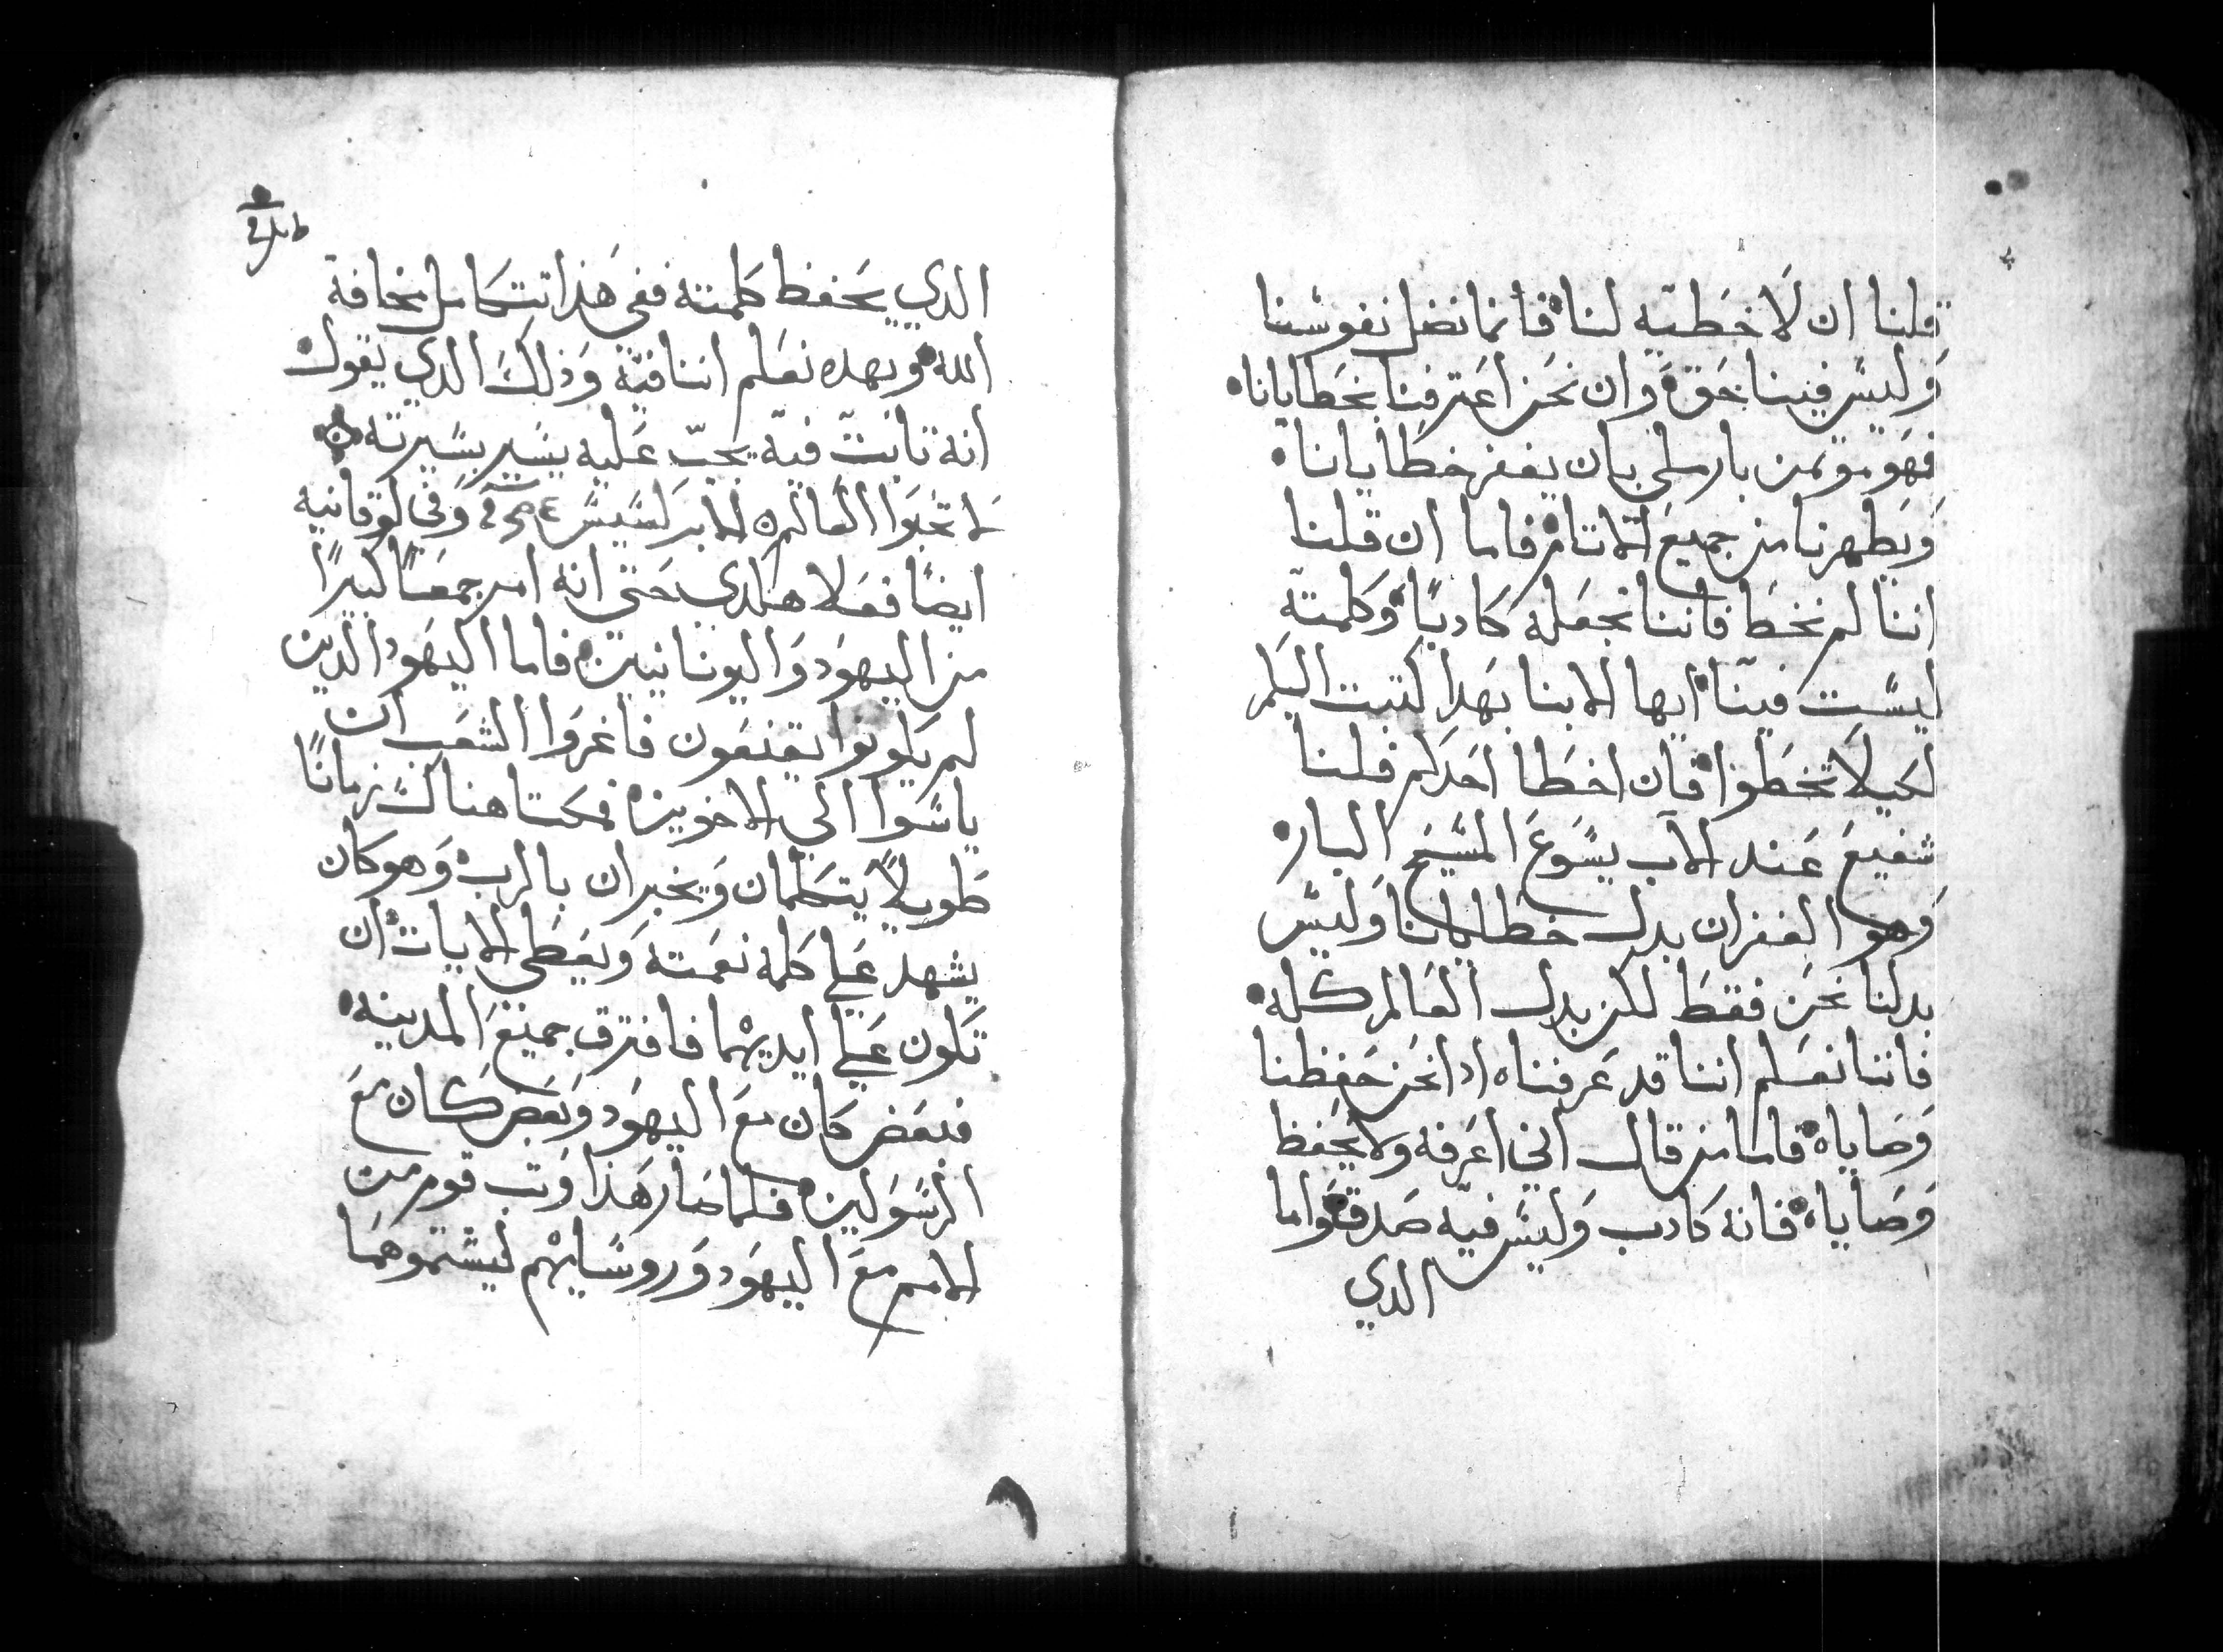 قلنا ان لا خطيه لنا فانما نضل نفوسنا
وليس فينا حق وان نحن اعترفنا بخطايانا
فهو موتمن بار ملي بان يغفر خطايانا
ويطهرنا من جميع الاتام فاما ان قلنا
اننا لم نخطا فاننا نجعله كادبًا وكلمته
ليست فينا ايها الابنا بهدا كتبت اليكم
لكيلا تخطوا فان اخطا احدكم فلنا
شفيع عند الاب يسوع المسيح البار
وهو الغفران بدل خطايانا وليس
بدلنا نحن فقط لكن بدل العالم كله
فاننا نعلم اننا قد عرفناه ادا نحن حفظنا
وصاياه فاما من قال اني اعرفه ولا يحفظ
وصاياه فانه كادب وليس فيه صدق واما
الدي
الدي يحفظ كلمته ففي هذا تتكامل مخافة
الله وبهده نعلم اننا فيه وذلك الدي يقول
انه تابت فيه يجب عليه يسير بسيرته
لا تحبوا العالم الابركسيس وفي لوقانيه
ايضًا فعلا هكدي حتى انه امن جمعًا كبيرًا
من اليهود واليونانيين فاما اليهود الدين
لم يكونوا يقنعون فاغروا الشعب ان
ياسوا الي الاخوين فمكتا هناك زمانًا
طويلاً يتكلمان ويخبران بالرب وهو كان
يشهد علي كلمة نعمته ويعطي الايات ان
تكون علي ايديهما فافترق جميع المدينه
فبعض كان مع اليهود وبعض كان مع
الرسولين فلما صار هذا وتب قوم من
الامم مع اليهود وروسايهم ليشتموهما